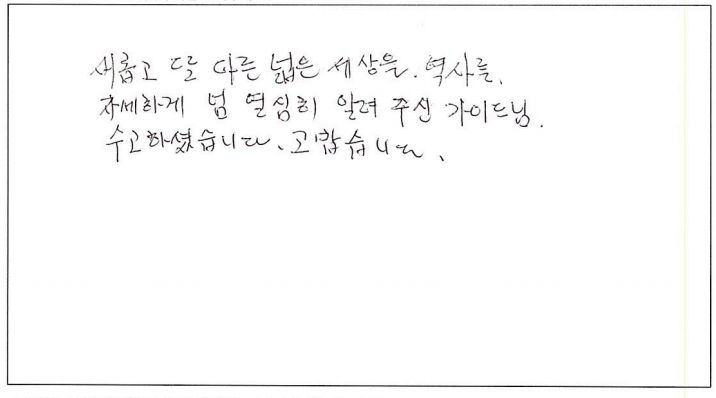 새롭고 또 다른 넓은 세상을. 역사를.
자세하게 넘 열심히 알려 주신 가이드님.
수고하셨습니다. 고맙습니다.